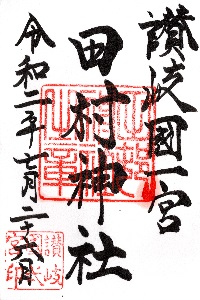 讃岐國一宮
田村神社
令和二年七月二十六日